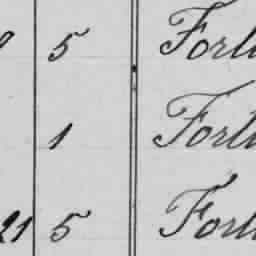 5 Fort
1 Fort
21 5 Fort